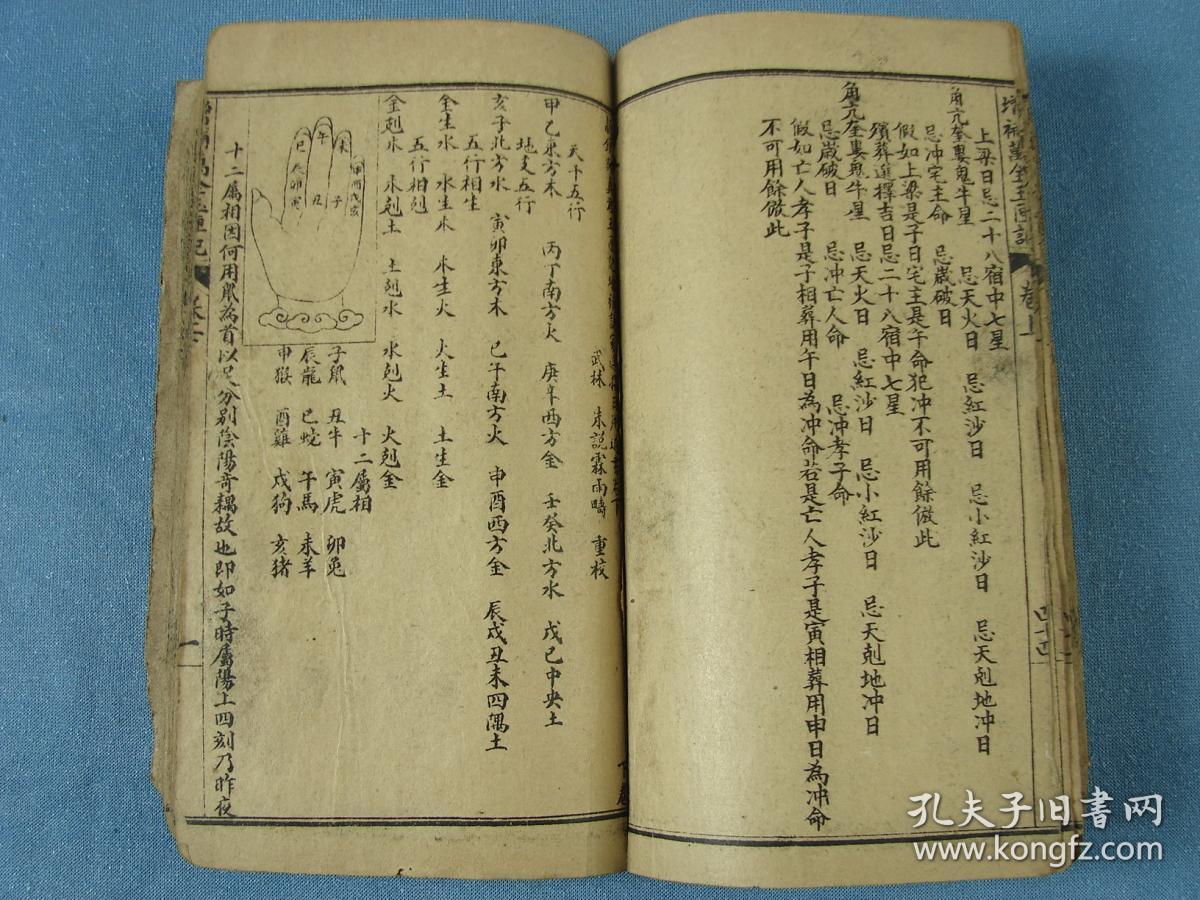 增補萬全玉匣記
卷上
上梁日忌二十八宿中七星
角亢奎婁鬼牛星 忌天火日 忌紅沙日 忌小紅沙日 忌天剋地冲日
忌冲宅主命 忌歲破日
假如上梁是子日宅主是午命犯冲不可用餘倣此
殯葬選擇吉日忌二十八宿中七星
角亢奎婁鬼牛星 忌天火日 忌紅沙日 忌小紅沙日 忌天剋地冲日
忌歲破日 忌冲亡人命 忌冲孝子命
假如亡人孝子是子相葬用午日為冲命若是亡人孝子是寅相葬用申日為冲命
不可用餘倣此
四十四
武林 朱説霖雨疇 重校
天干五行
甲乙東方木 丙丁南方火 庚辛西方金 壬癸北方水 戊己中央土
地支五行
亥子北方水 寅卯東方木 巳午南方火 申酉西方金 辰戌丑未四隅土
五行相生
金生水 水生木 木生火 火生土 土生金
五行相剋
金剋木 木剋土 土剋水 水剋火 火剋金
十二屬相
子鼠 丑牛 寅虎 卯兔
辰龍 巳蛇 午馬 未羊
申猴 酉雞 戌狗 亥猪
未
午
巳
申酉戌亥
子
丑
辰卯寅
十二屬相因何用鼠為首以足分别陰陽奇耦故也即如子時屬陽上四刻乃昨夜
一
孔夫子旧书网
www.kongfz.com